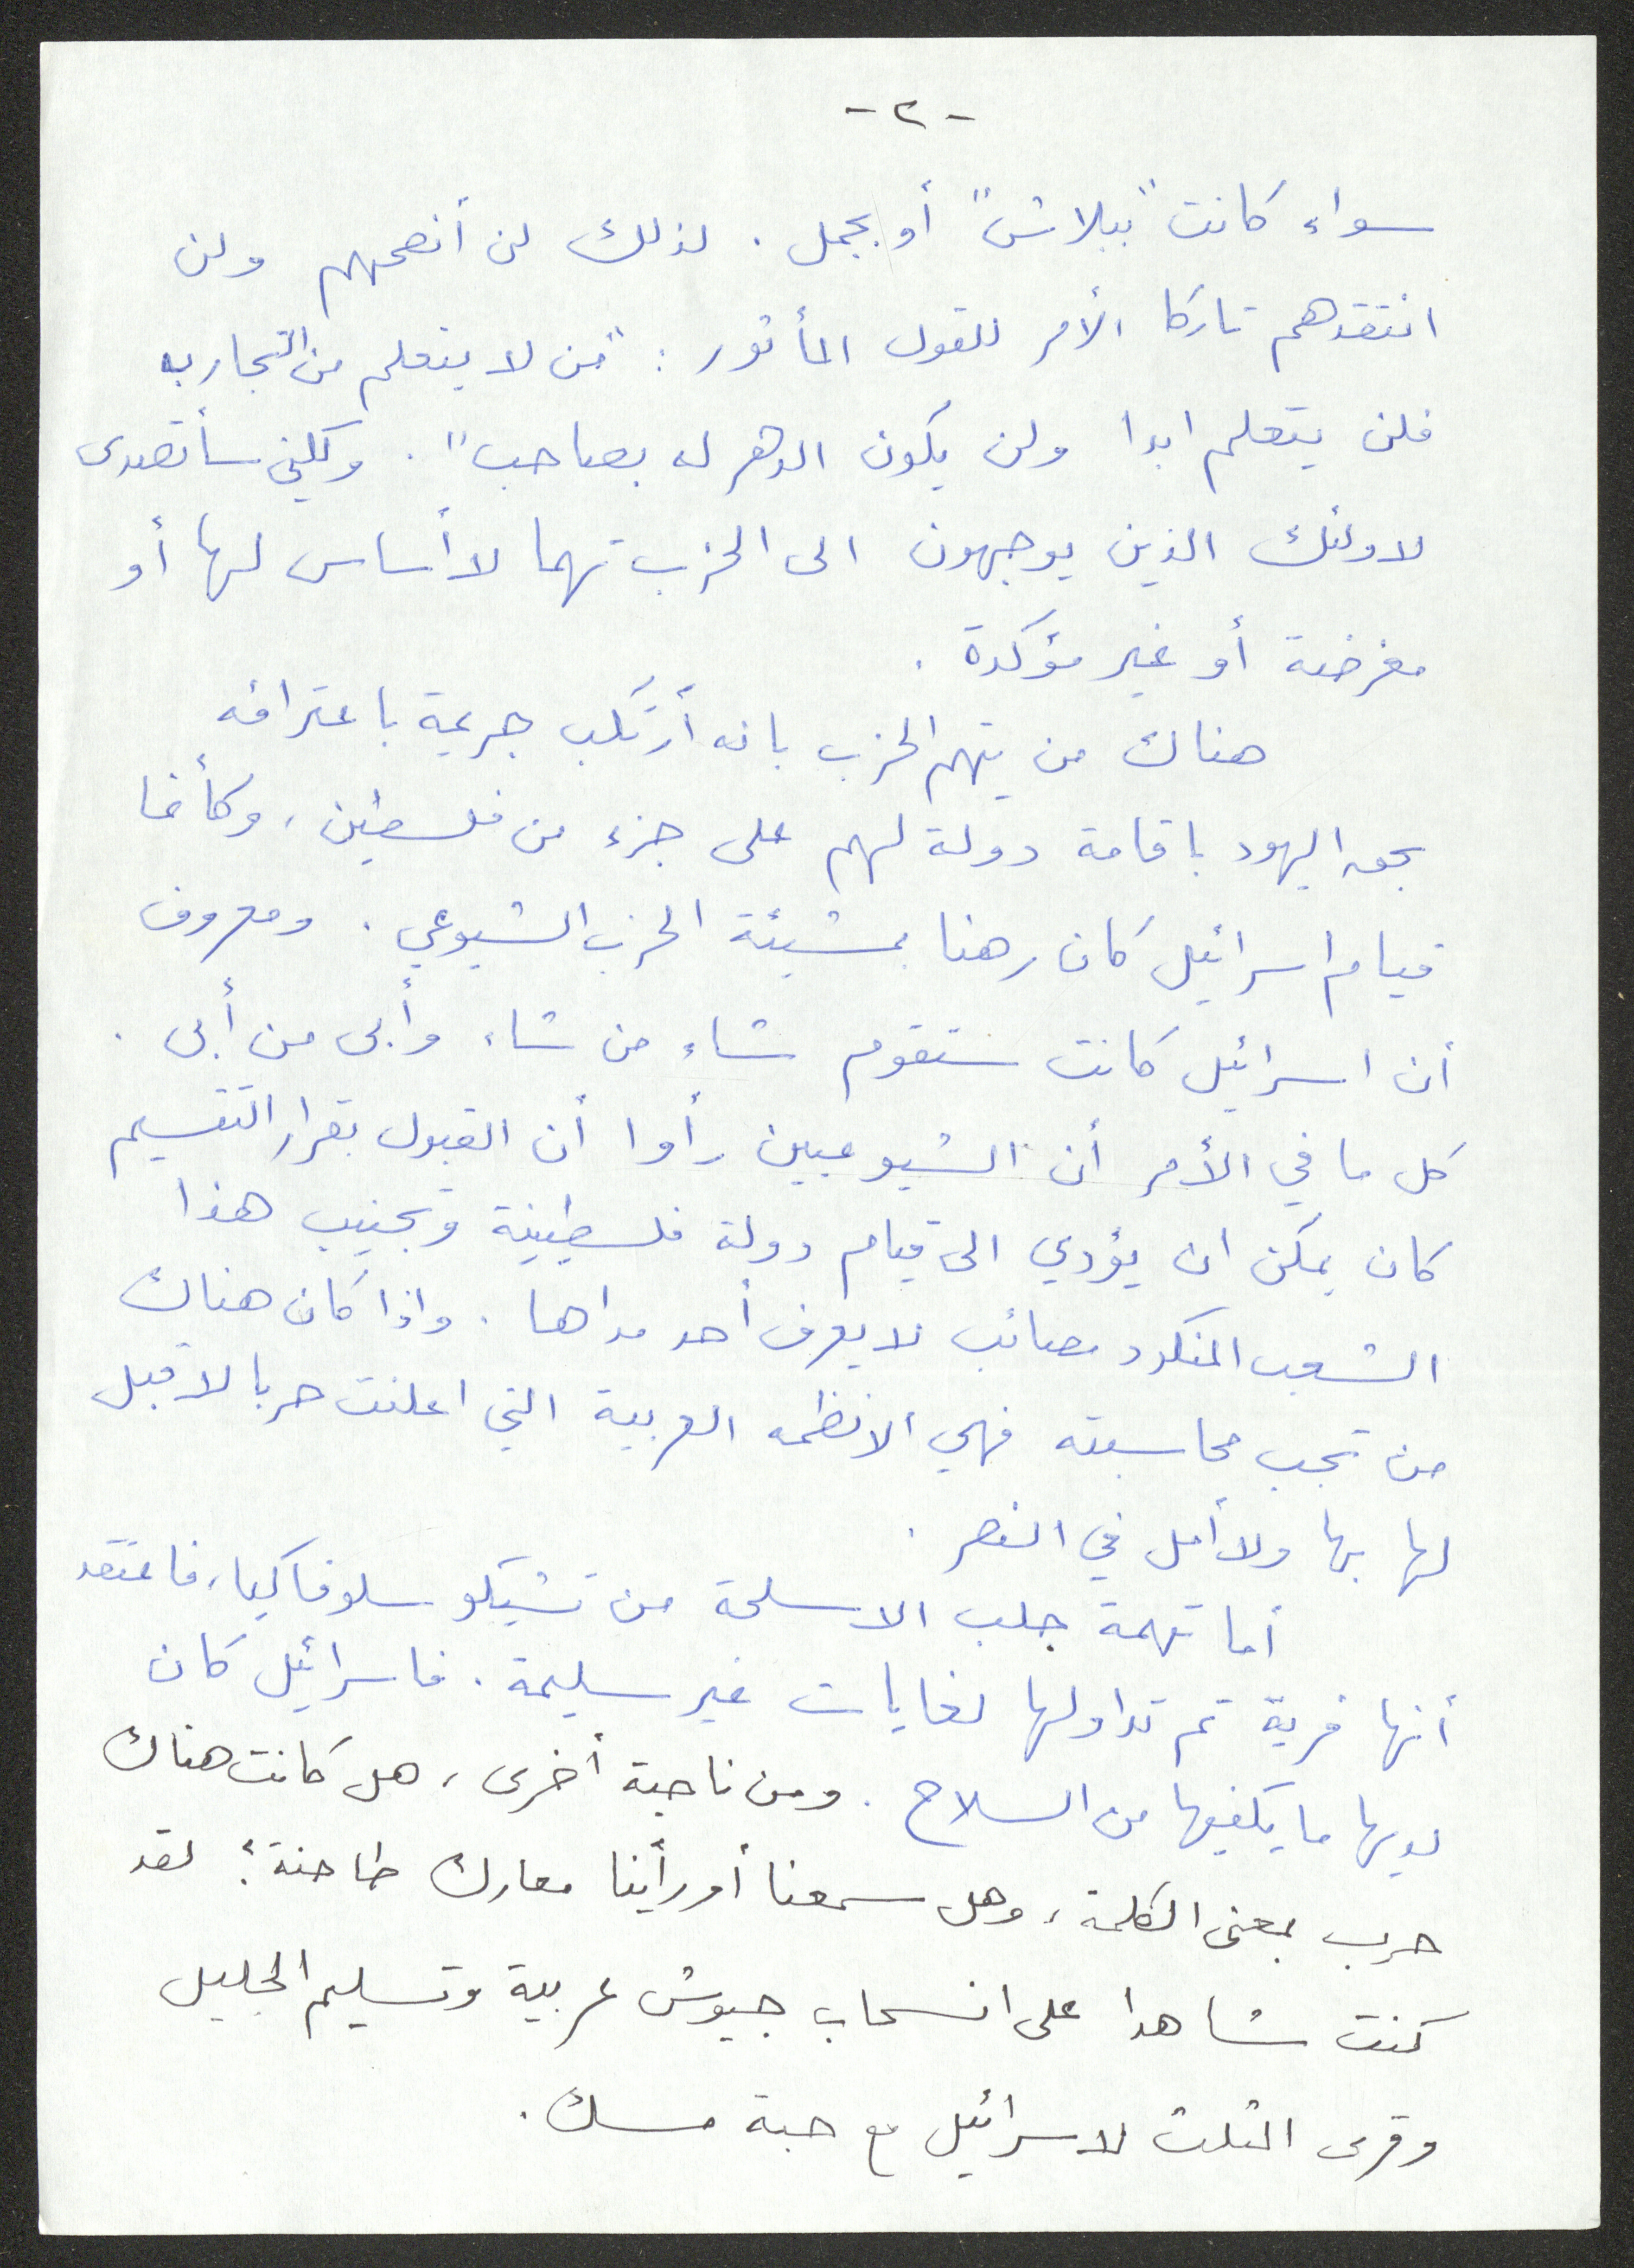 -٢-
سواء كانت "ببلاش" أو بجمل . لذلك لن أنصحهم ولن
انتقدهم تاركا الأمر للقول المأثور : "من لا يتعلم من التجارب
فلن يتعلم ابدا ولن يكون الدهر له بصاحب" . ولكني سأتصدى
لاولئك الذين يوجهون الى الحزب تهما لا أساس لها أو
مغرضة أو غير مؤكدة .
هناك من يتهم الحزب بانه أرتكب جريمة باعترافه
بحق اليهود باقامة دولة لهم على جزء من فلسطين ، وكأنما
قيام اسرائيل كان رهنا بمشيئة الحزب الشيوعي . ومعروف
أن اسرائيل كانت ستقوم شاء من شاء وأبى من أبى .
كل ما في الأمر أن الشيوعيين رأوا أن القبول بقرار التقسيم
كان يمكن ان يؤدي الى قيام دولة فلسطينية وتجنيب هذا
الشعب المنكود مصائب لا يعرف أحد مداها . واذا كان هناك
من تجب محاسبته فهي الانظمه العربية التي اعلنت حربا لا قبل
لها بها ولا أمل في النصر .
أما تهمة جلب الاسلحة من تشيكوسلوفاكيا ، فاعتقد
أنها فرية تم تداولها لغايات غير سليمة . فاسرائيل كان
لديها ما يكفيها من السلاح . ومن ناحية أخرى ، هل كانت هناك
حرب بمعنى الكلمة ، وهل سمعنا أو رأينا معارك طاحنة ؟ لقد
كنت شاهدا على انسحاب جيوش عربية وتسليم الجليل
وقرى المثلث لاسرائيل مع حبة مسك .